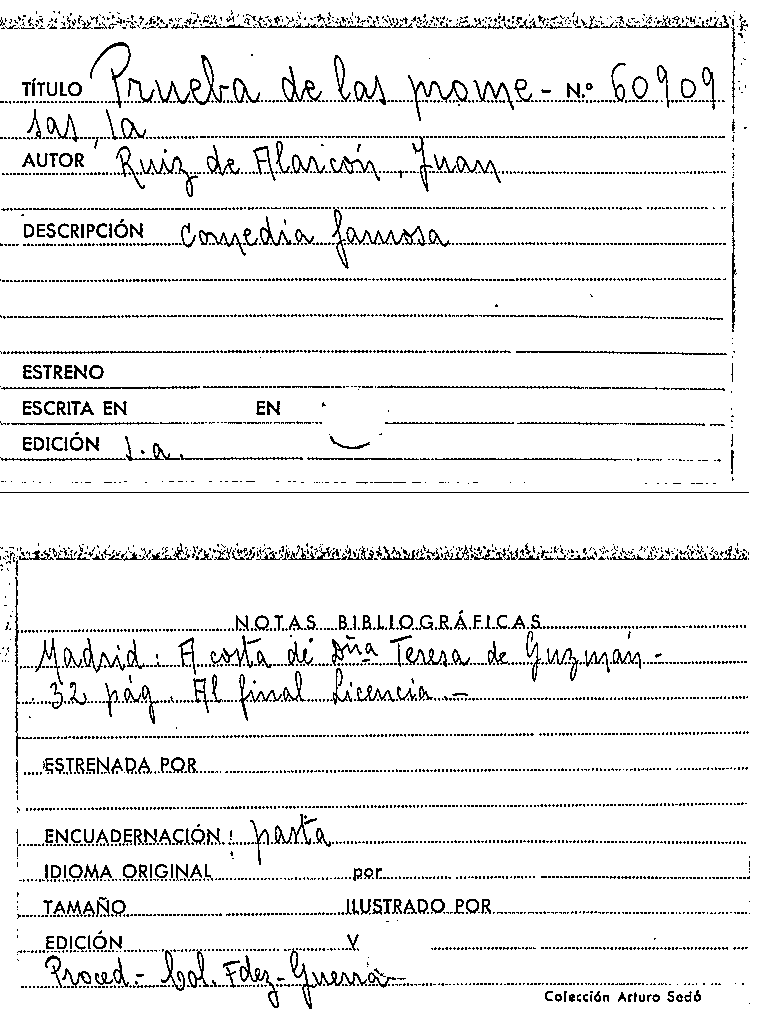 TÍTULO Prueba de las prome- N.º 60909
sas, la
AUTOR Ruiz de Alarcón, Juan
DESCRIPCIÓN Comedia famosa
ESTRENO
ESCRITA EN EN
EDICIÓN s.a.
NOTAS BIBLIOGRÁFICAS
Madrid: A costa de Dña Teresa de Guzmán-
32 pág. Al final Licencia.-
ESTRENADA POR
ENCUADERNACIÓN: pasta
IDIOMA ORIGINAL por
TAMAÑO ILUSTRADO POR
EDICIÓN Y
Proced.- Col. Fdez-Guerra
Colección Arturo Sedó